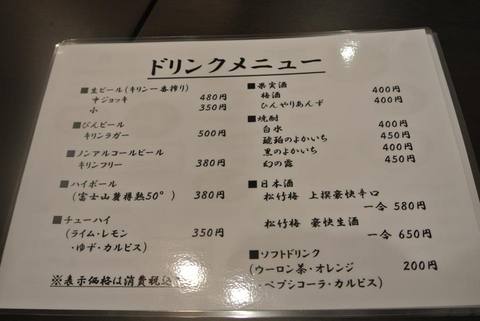 ドリンクメニュー
■生ビール(キリン一番搾り)
中ジョッキ 480円
小 350円
■びんビール
キリンラガー 500円
■ノンアルコールビール
キリンフリー 380円
■ハイボール
(富士山麓樽熟50°) 380円
■チューハイ
(ライム・レモン 350円
・ゆず・カルピス)
※表示価格は消費税込
■果実酒 400円
梅酒 400円
ひんやりあんず
■焼酎
白水 400円
琥珀のよかいち 450円
黒のよかいち 400円
幻の露 450円
■日本酒
松竹梅 上撰豪快辛口
一合 580円
松竹梅 豪快生酒
一合 650円
■ソフトドリンク
(ウーロン茶・オレンジ 200円
・ペプシコーラ・カルピス)